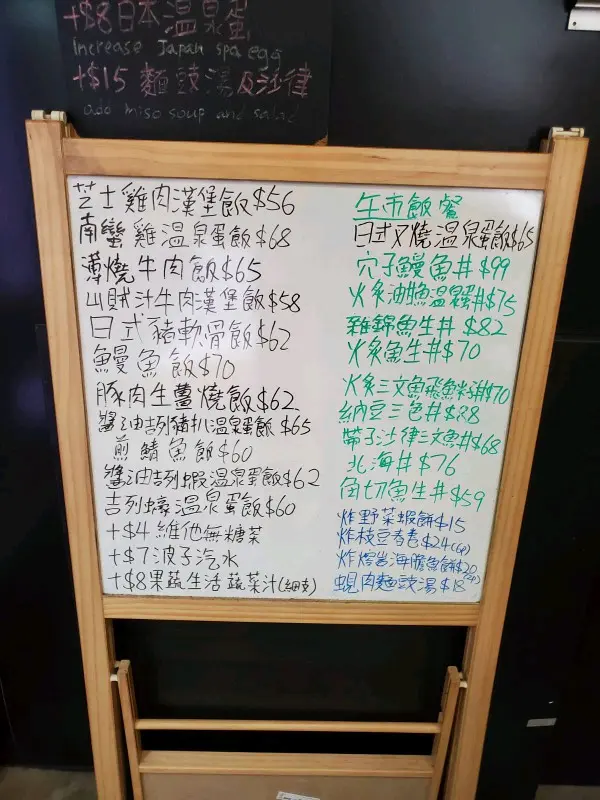 +$8日本溫泉蛋
Increase Japan spa egg
+$15 麵豉湯及沙律
add miso soup and salad
芝士雞肉漢堡飯$56
南蠻雞溫泉蛋飯$68
薄燒牛肉飯$65
山賊汁牛肉漢堡飯$58
日式豬軟骨飯$62
鰻魚飯$70
豚肉生薑燒飯$62
醬油吉列豬扒溫泉蛋飯$65
煎鯖魚飯$60
醬油吉列蝦溫泉蛋飯$62
吉列蠔溫泉蛋飯$60
+$4維他無糖茶
+$7波子汽水
+$8果蔬生活蔬菜汁(細支)
午市飯餐
日式叉燒溫泉蛋飯$65
穴子鰻魚丼$99
火炙油魚溫泉蛋丼$75
雜錦魚生丼 $82
火炙魚生丼$70
火炙三文魚飛魚籽丼$70
納豆三色丼$88
帶子沙律三文魚丼$68
北海丼$76
角切魚生丼$59
炸野菜蝦餅$15
炸枝豆春卷$24(6p)
炸熔岩海膽魚餅$20(2p)
蜆肉麵豉湯$18